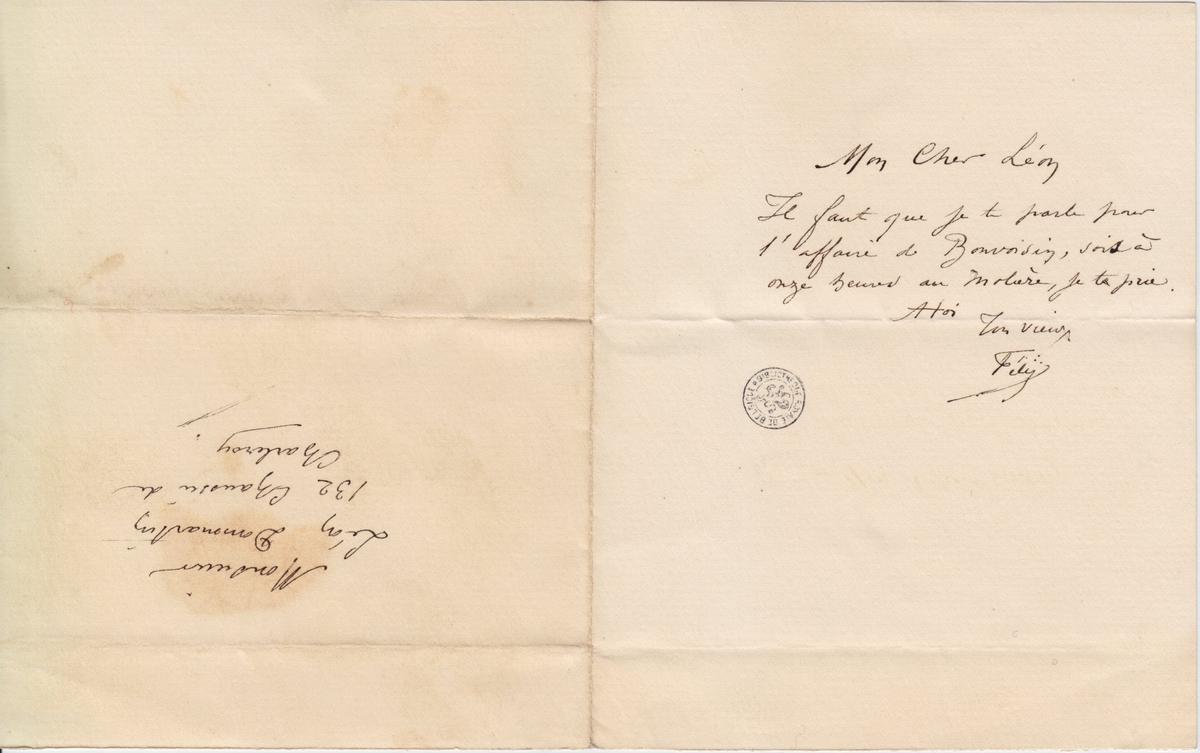 Mon Cher Léon
Il faut que je te parle pour
l'affaire de Bonvoisin, sois à
onze heures au Molière, je te prie.
A toi
Ton vieux
Fély
BIBLIOTHÈQUE ROYALE DE BELGIQUE
Monsieur
Léon Dommartin
132 Chaussée de
Charleroy.